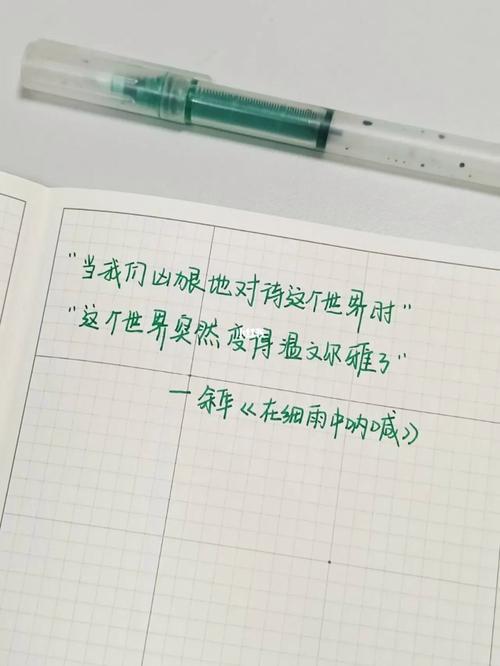 "当我们凶狠地对待这个世界时"
"这个世界突然变得温文尔雅了"
—余华《在细雨中呐喊》